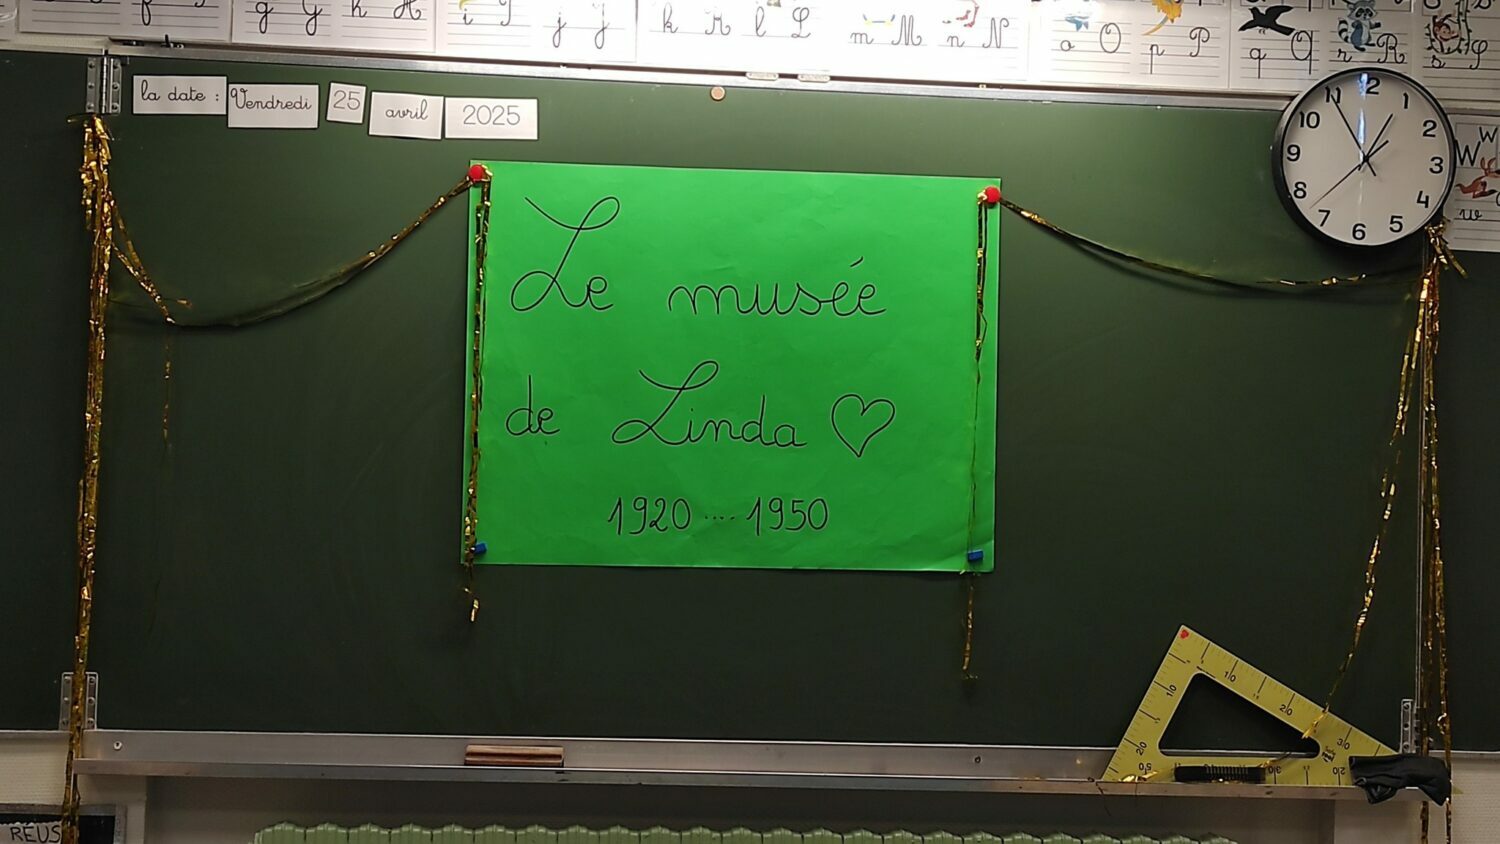 g G h H i j j k K l L m M n N o O p P q Q r R s S
la date : Vendredi 25 avril 2025
W w
w
Le musée
de Linda ♡
1920 .... 1950
12 1 2 3 4 5 6 7 8 9 10 11
10 20 30
10 20
50 30 20
REUS